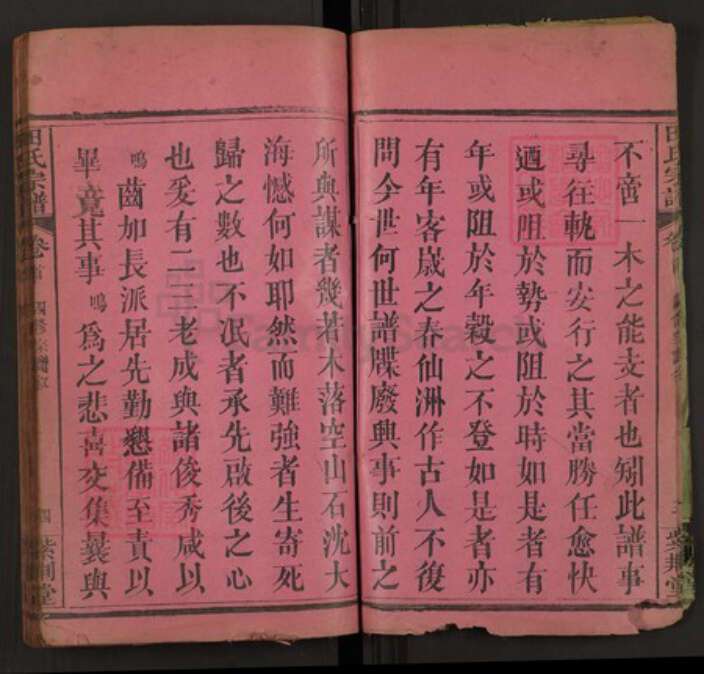 不啻一木之能支者也矧此譜事
尋往軌而安行之其當勝任愈快
廼或阻於勢或阻於時如是者有
年或阻於年穀之不登如是者亦
有年客歲之春仙洲作古人不復
問今世何世譜牒廢興事則前之
所與謀者幾若木落空山石沈大
海憾何如耶然而難強者生寄死
歸之數也不泯者承先啟後之心
也爰有二三老成與諸俊秀咸以
鳴齒加長派居先勤懇備至責以
畢竟其事鳴為之悲喜交集曩與
田氏宗譜 卷首 四修宗譜序 四 紫荊堂